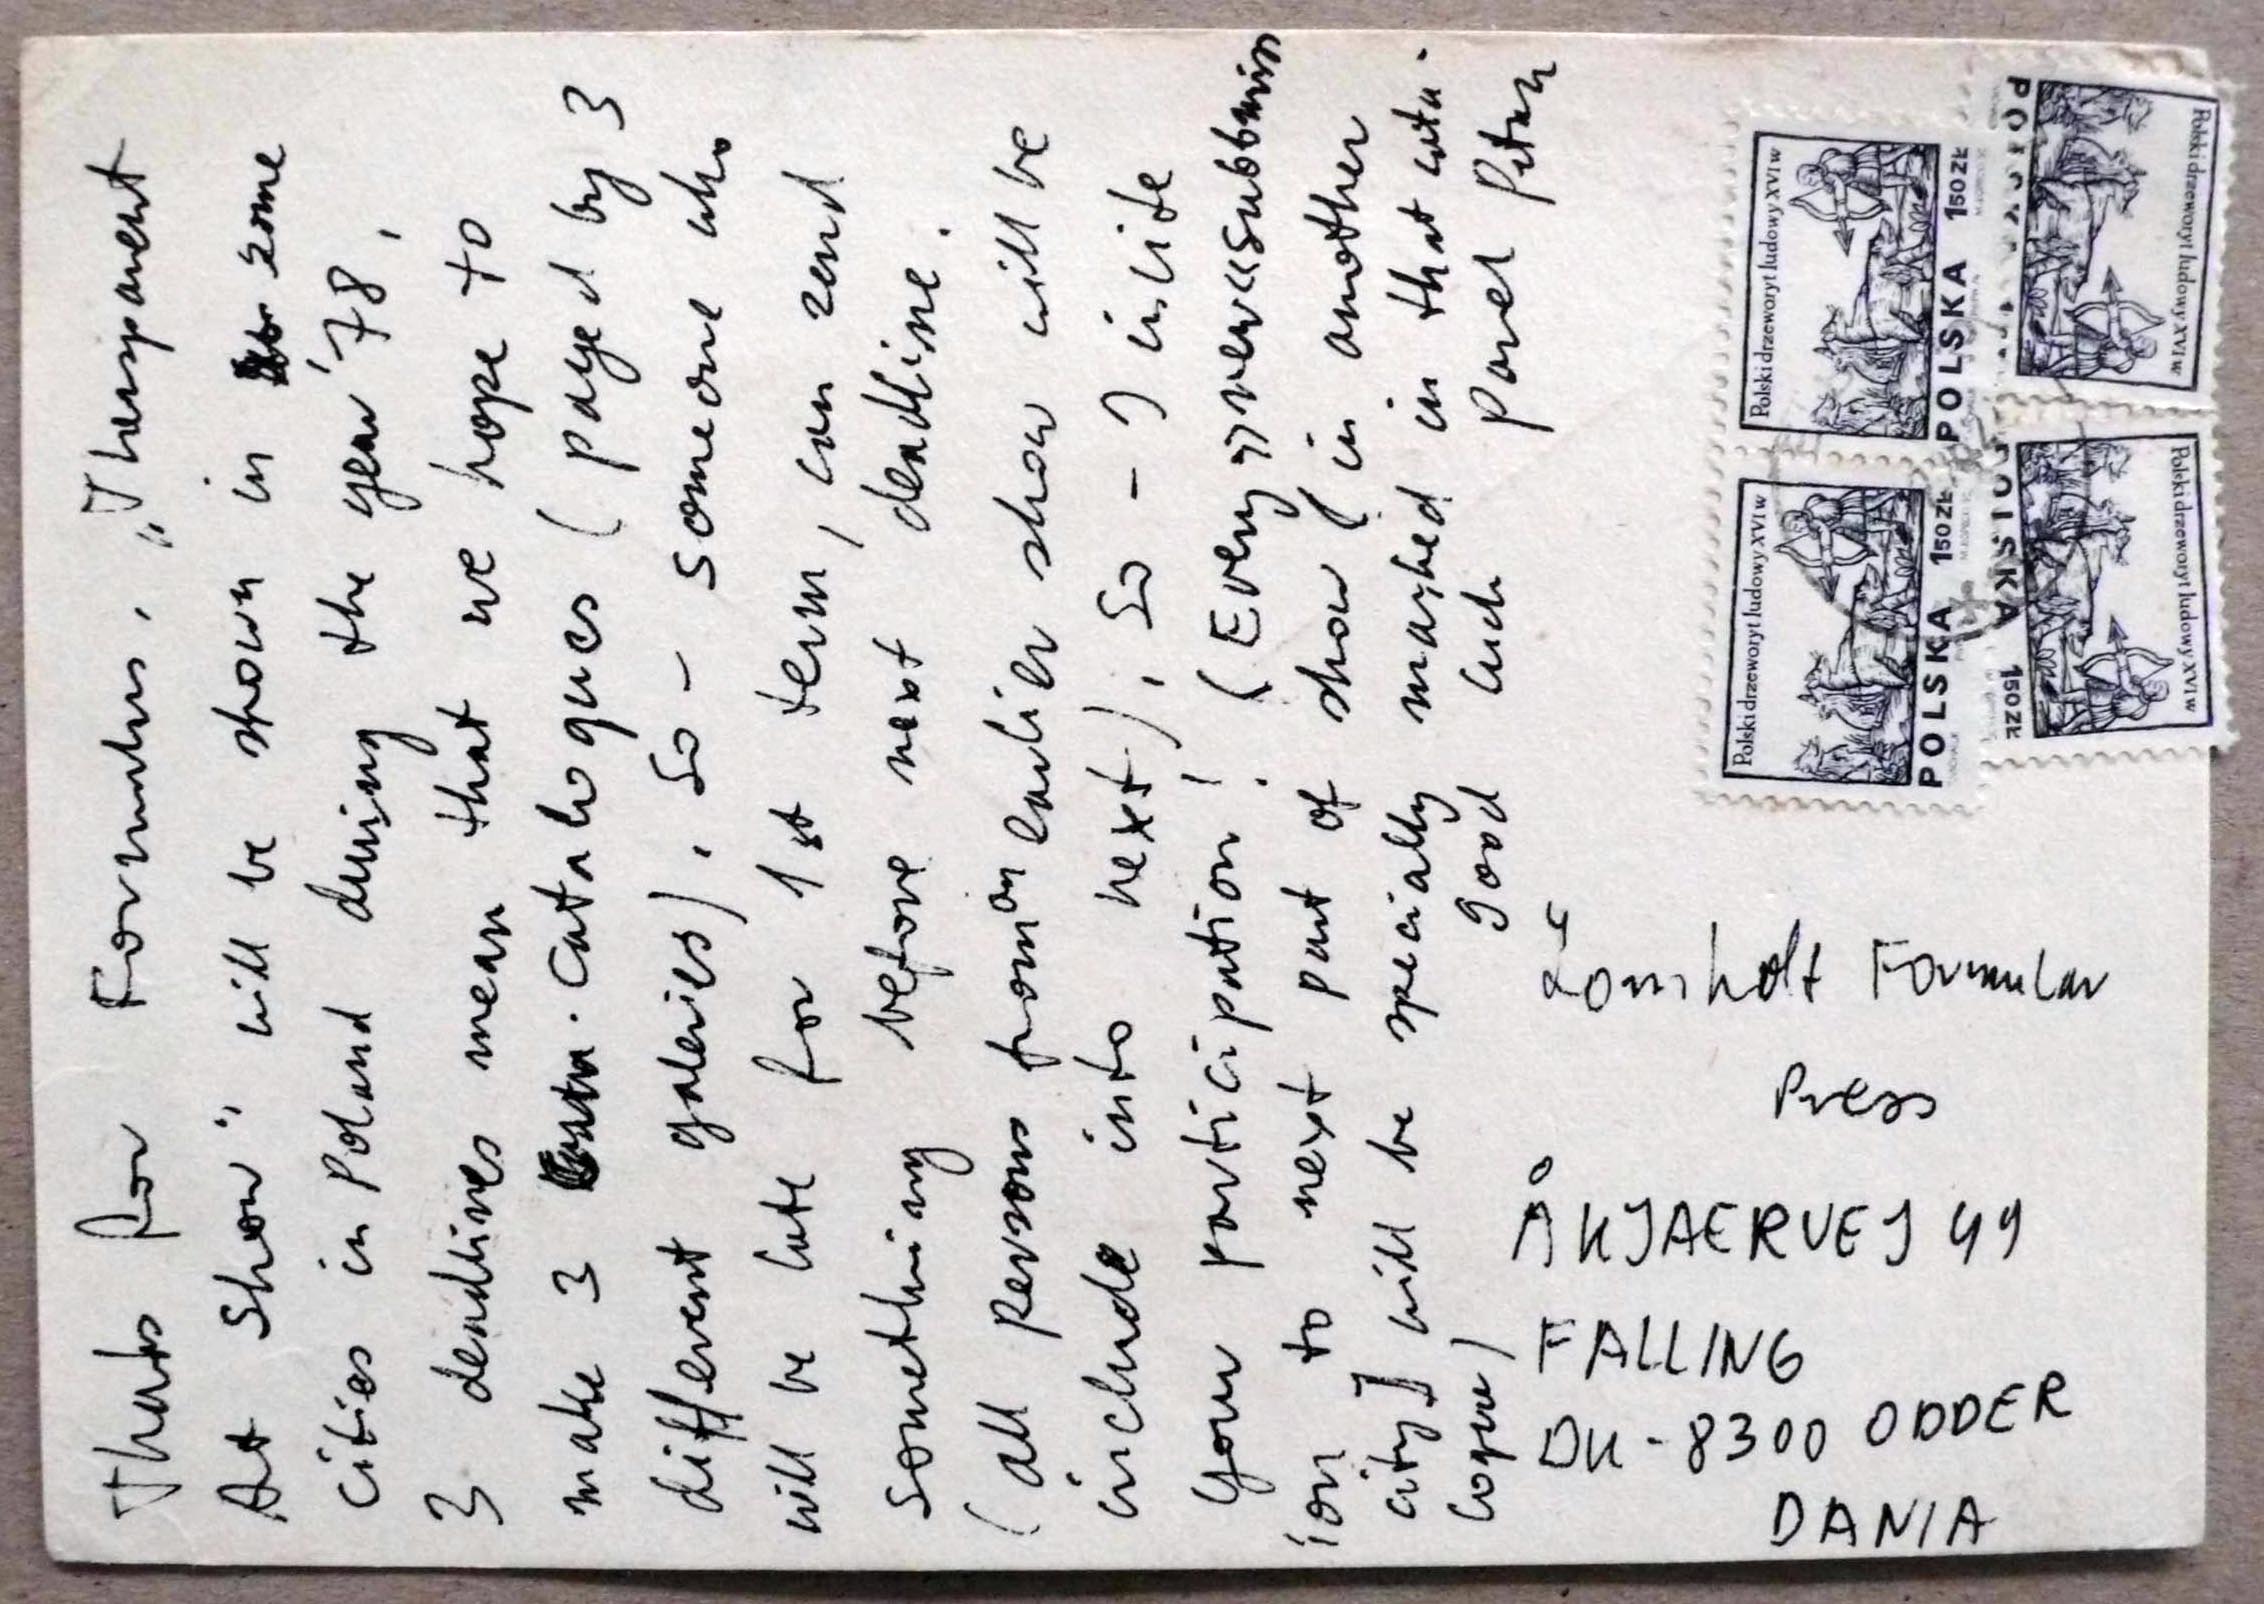 Thanks for Formulars. „Therapanent
Art Show" will be shown in some
cities in Poland during the year '78,
3 deadlines mean that we hope to
make 3 catalogues (payed by 3
different galeries). So - someone who
will be late for 1st term, can send
something before next deadline.
(all persons from an earlier show will be
include into next). So - I invite
your participation! (Every
ion to next part of show (in another
city] will be specially marked in that cata-
logue) Good Luck Pawel Petasz
Lomholt Formular
Press
ÅKJAERVEJ 49
FALLING
DK-8300 ODDER
DANIA
Polski drzeworyt ludowy XVI w
POLSKA 150 ZŁ
Polski drzeworyt ludowy XVI w
POLSKA 150 ZŁ
Polski drzeworyt ludowy XVI w
POLSKA
Polski drzeworyt ludowy XVI w
POLSKA 150 ZŁ